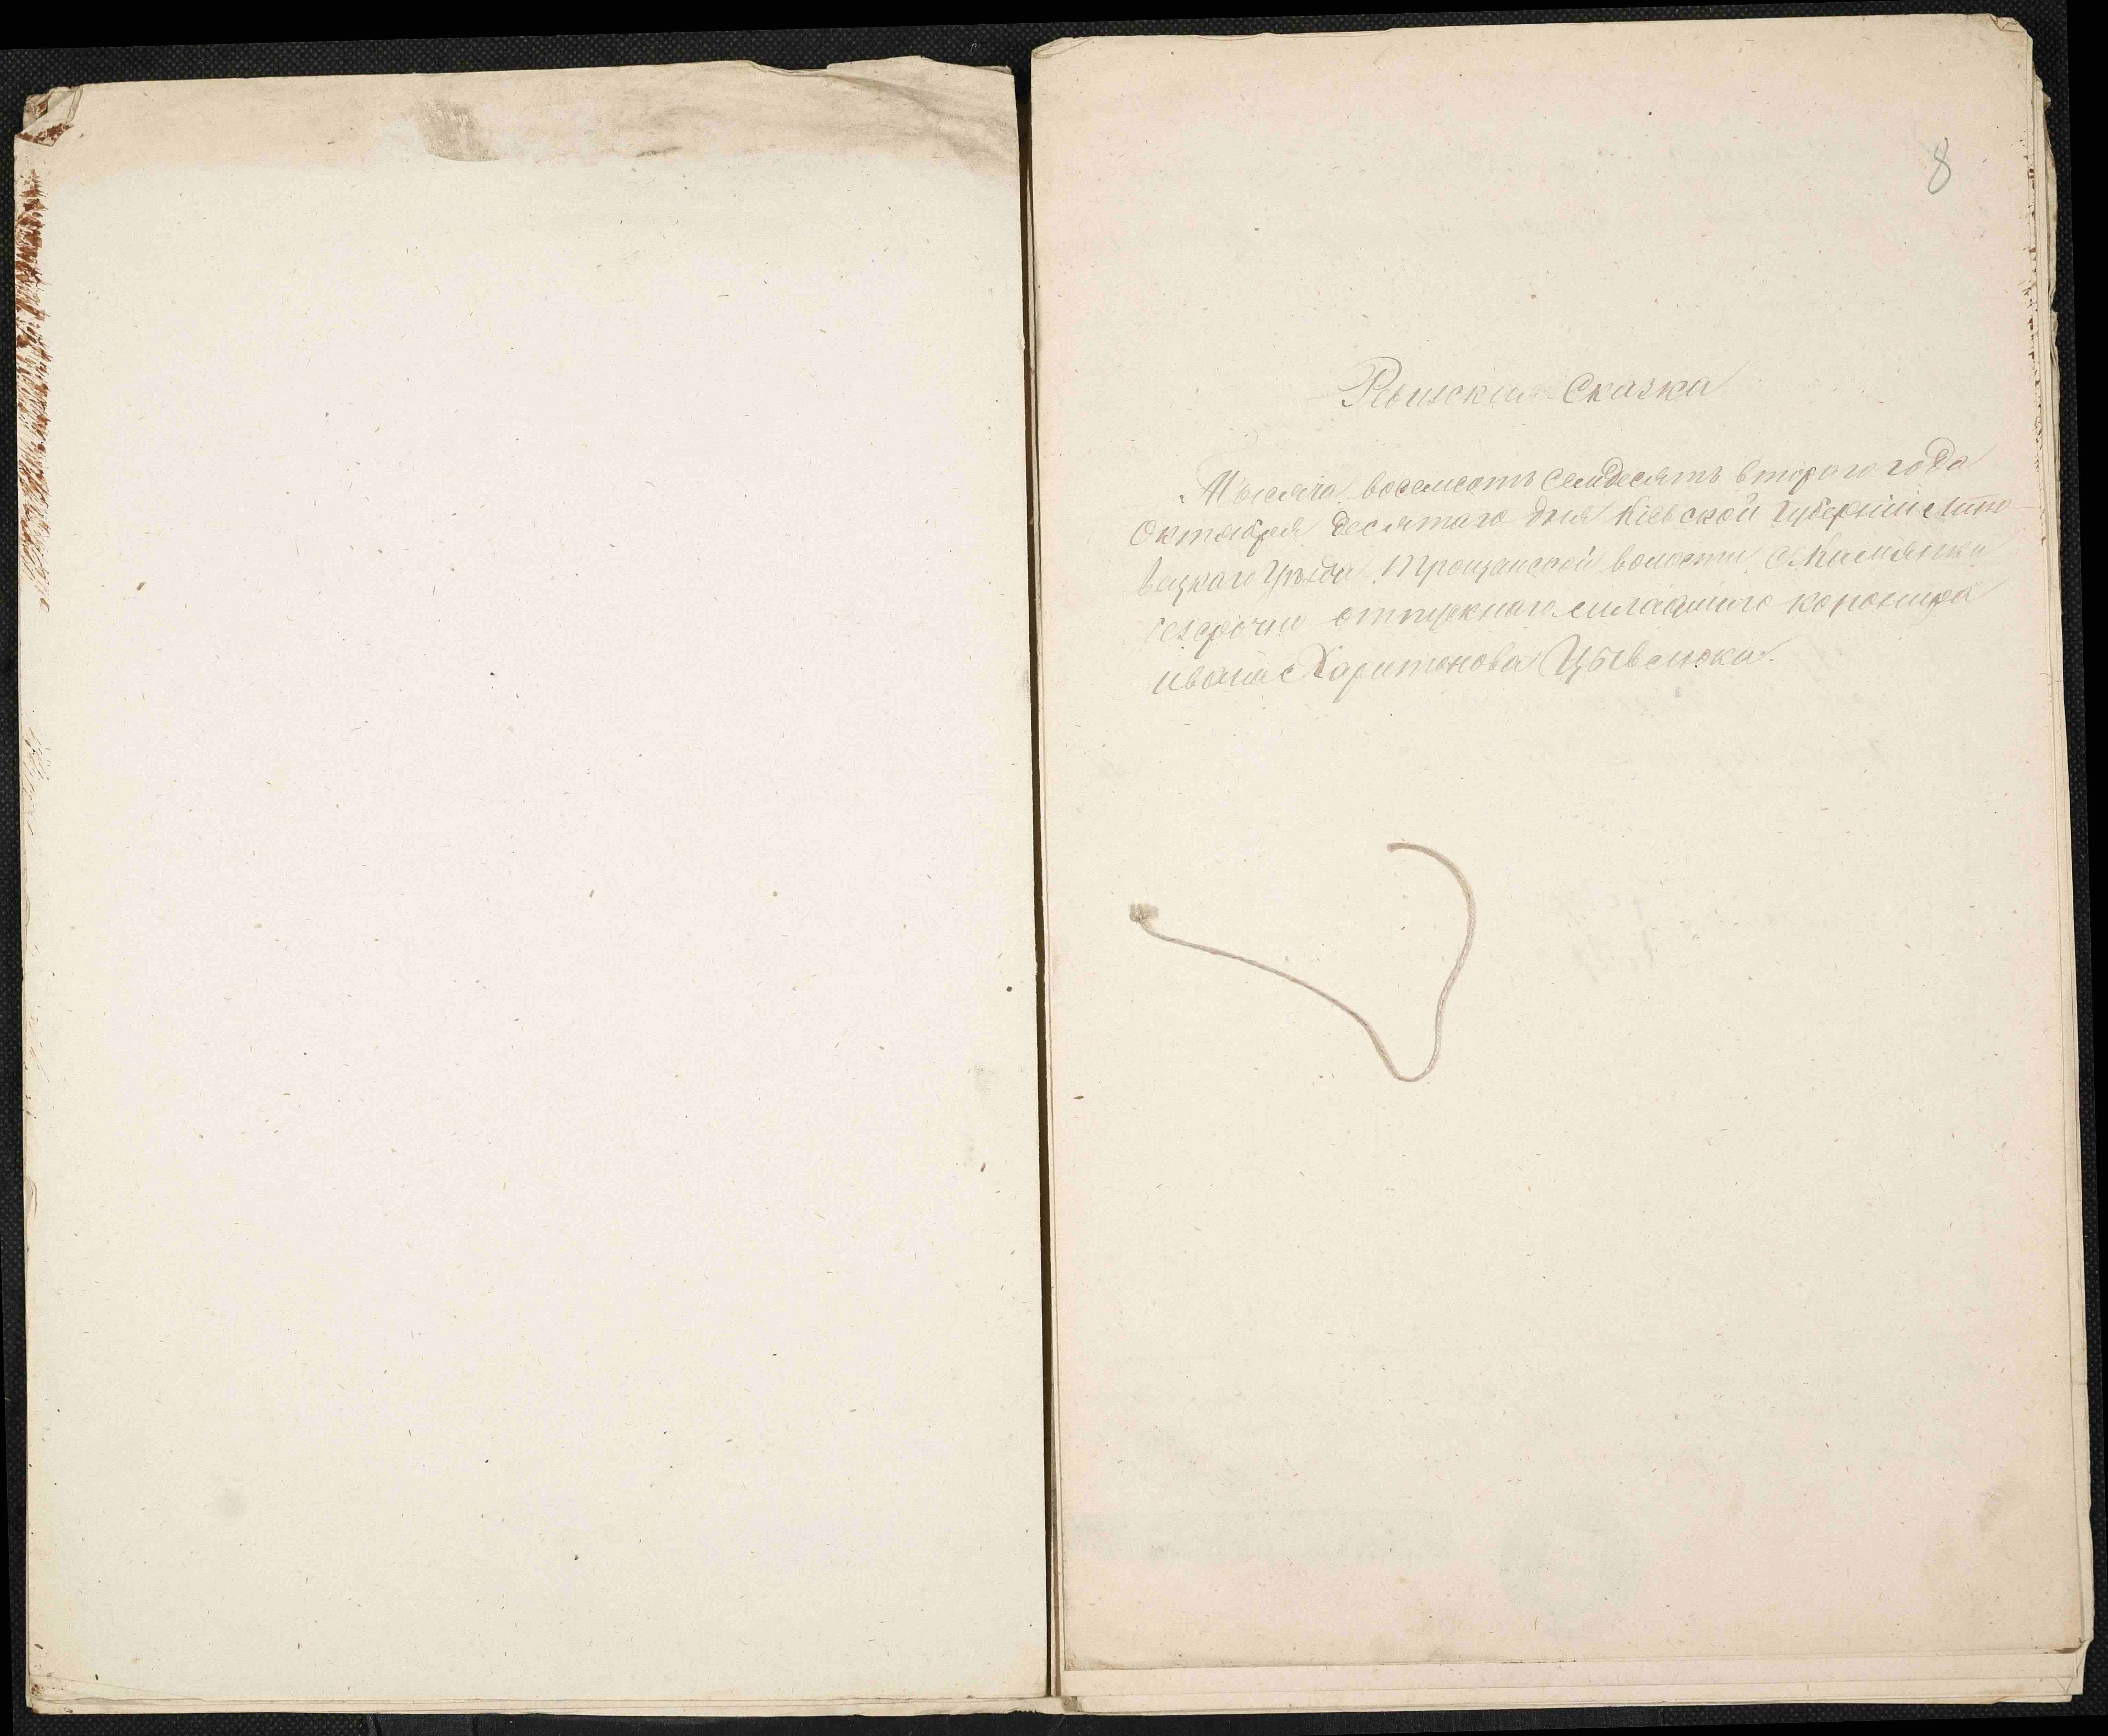 8
Ревизская Сказка
Тысяча восемсотъ Семдесятъ втораго года
Октября десятаго дня Кіевской Губерніи Липо-
вецкаго Уѣзда Трощанской волости С. Камянки
безсрочно отпускнаго младшаго канонира
Ивана Харитонова Цывлюка.